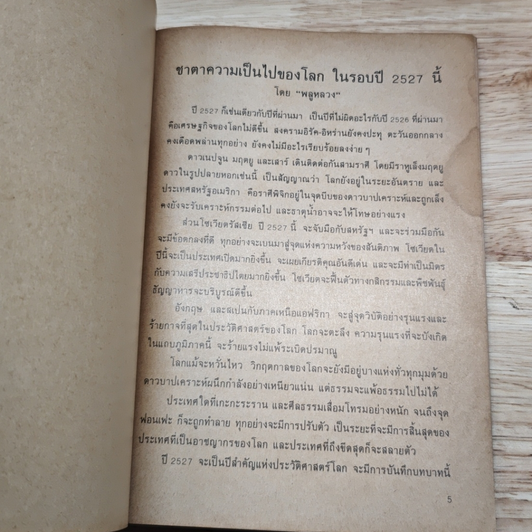 ชาตาความเป็นไปของโลก ในรอบปี 2527 นี้
โดย "พลูหลวง"
ปี 2527 ก็เช่นเดียวกับปีที่ผ่านมา เป็นปีที่ไม่ผิดอะไรกับปี 2526 ที่ผ่านมา
คือเศรษฐกิจของโลกไม่ดีขึ้น สงครามอิรัค-อิหร่านยังคงปะทุ ตะวันออกกลาง
คงเดือดพล่านทุกอย่าง ยังคงไม่มีอะไรเรียบร้อยลงง่าย ๆ
ดาวเนปจูน มฤตยู และเสาร์ เดินติดต่อกันสามราศี โดยมีราหูเล็งมฤตยู
ดาวในรูปปลายหอกเช่นนี้ เป็นสัญญาณว่า โลกยังอยู่ในระยะอันตราย และ
ประเทศสหรัฐอเมริกา คือราศีพิจิกอยู่ในจุดบีบของดาวบาปเคราะห์และถูกเล็ง
คงยังจะรับเคราะห์กรรมต่อไป และธาตุน้ำอาจจะให้โทษอย่างแรง
ส่วนโซเวียตรัสเซีย ปี 2527 นี้ จะจับมือกับสหรัฐฯ และจะร่วมมือกัน
จะมีข้อตกลงที่ดี ทุกอย่างจะเบนมาสู่จุดแห่งความหวังของสันติภาพ โซเวียตใน
ปีนี้จะเป็นประเทศเปิดมากยิ่งขึ้น จะเผยเกียรติคุณอันดีเด่น และจะมีท่าเป็นมิตร
กับความเสรีประชาธิปไตยมากยิ่งขึ้น โซเวียตจะฟื้นตัวทางกสิกรรมและพืชพันธุ์
ธัญญาหารจะบริบูรณ์ดีขึ้น
อังกฤษ และสเปนกับภาคเหนือแอฟริกา จะสู่จุดวิบัติอย่างรุนแรงและ
ร้ายกาจที่สุดในประวัติศาสตร์ของโลก โลกจะตะลึง ความรุนแรงที่จะบังเกิด
ในแถบภูมิภาคนี้ จะร้ายแรงไม่แพ้ระเบิดปรมาณู
โลกแม้จะหวั่นไหว วิกฤตกาลของโลกจะยังมีอยู่บางแห่งทั่วทุกมุมด้วย
ดาวบาปเคราะห์ผนึกกำลังอย่างเหนียวแน่น แต่ธรรมจะแพ้อธรรมไปไม่ได้
ประเทศใดที่เกะกะระราน และศีลธรรมเสื่อมโทรมอย่างหนัก จนถึงจุด
ฟอนเฟะ ก็จะถูกทำลาย ทุกอย่างจะมีการปรับตัว เป็นระยะที่จะมีการสิ้นสุดของ
ประเทศที่เป็นอาชญากรของโลก และประเทศที่ถึงขีดสุดก็จะสลายตัว
ปี 2527 จะเป็นปีสำคัญแห่งประวัติศาสตร์โลก จะมีการบันทึกบทบาทนี้
5